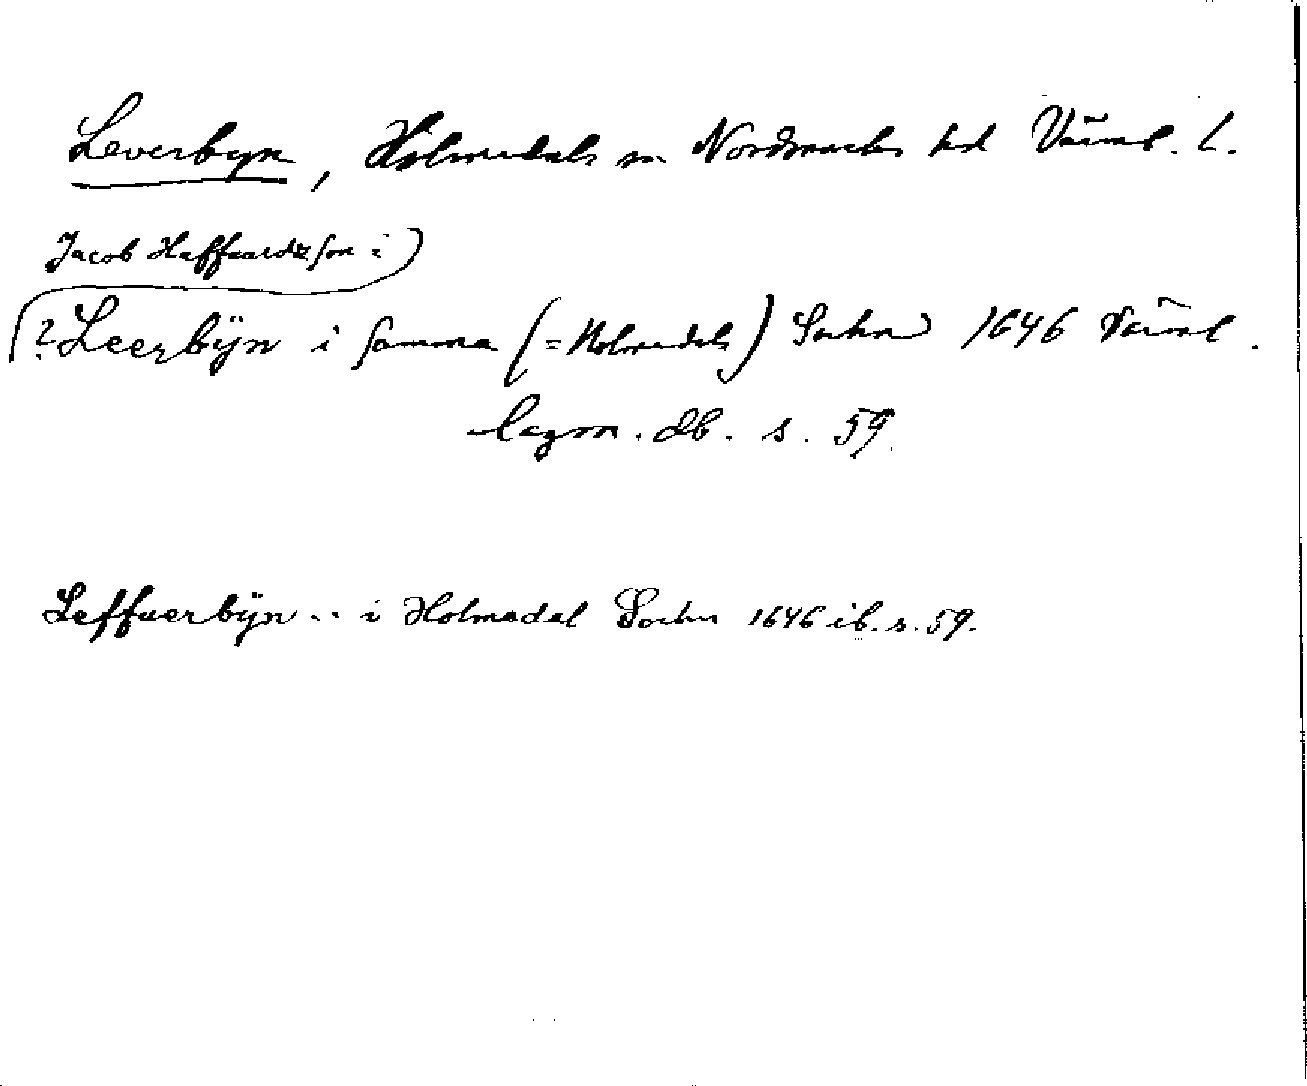 Leverbyn, Holmedals sn Nordmarks hd Värml. l.
Jacob Haffuardzson i
? Leerbÿn i samma (= Holmedals) Sochn 1646 Värml.
lagm. db. s. 59
Leffuerbÿn .. i Holmedal Sochn 1646 ib. s. 59.